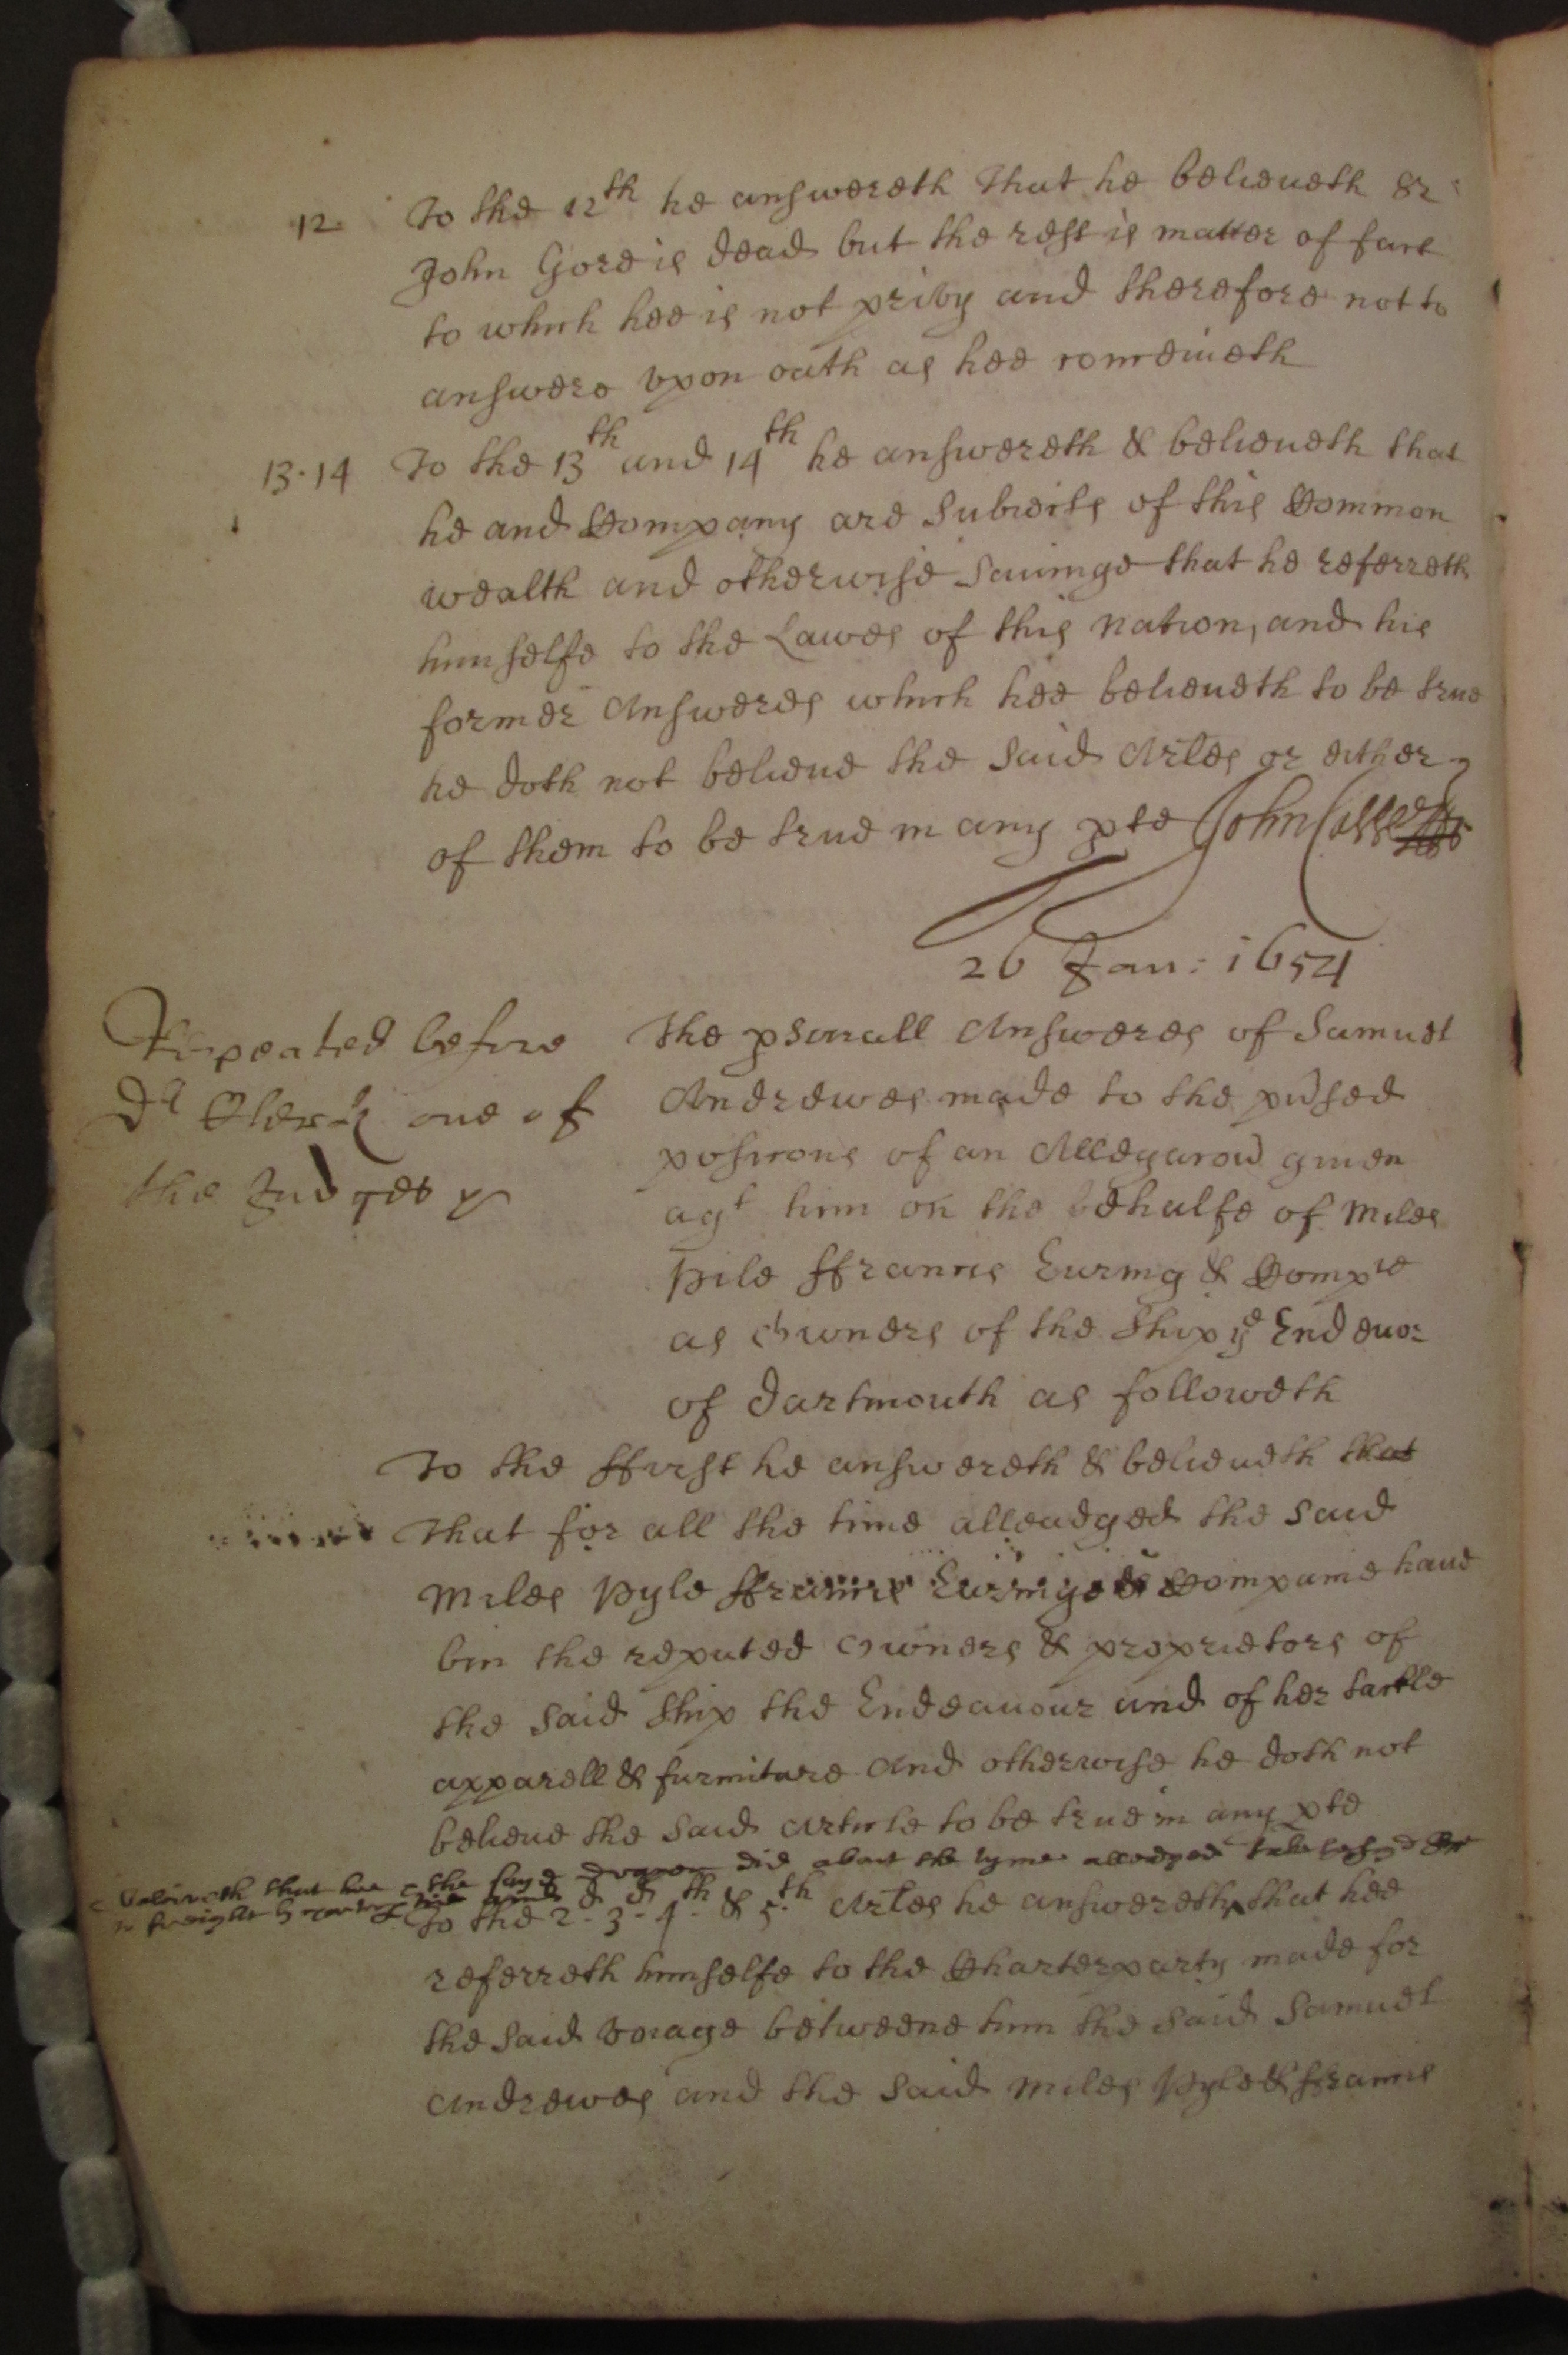 12 To the 12th he answereth That he believeth Sr
John Gore is dead but the rest is matter of fact
to which hee is not privy and therefore not to
answere upon oath as hee conceiveth
13.14 To the 13th and 14th he answereth & believeth that
he and Company are Subiects of this Common
wealth and otherwise Savinge that he referreth
himselfe to the Lawes of this Nation, and his
former Answeres which hee believeth to be true
he doth not believe the said Arles or either
of them to be true in any pte John
26 Jan: 1654
Repeated before
Dr Clerk one of
the Judges
The psonall Answeres of Samuel
Andrewes made to the ptnsed
posicons of an Allegacon given
agt him on the behalfe of Miles
Pile ffrancis Euring & Compie
as Owners of the Ship ye Endevor
of Dartmouth as followeth
To the ffirst he answereth & believeth that
That for all the time alleadged the said
Miles Pyle ffrancis Euringe & Companie have
bin the reputed Owners & proprietors of
the said Ship the Endeavour and of her tackle
apparell & furniture And otherwise he doth not
believe the said Article to be true in any pte
believeth that hee the sayd did about the tyme alledged take
to freight
To the 2-3-4th & 5th Arles he answereth that hee
referreth himselfe to the Charterparty made for
the said Voiage betweene him the said Samuel
Andrewes and the said Miles Pyle & ffrancis